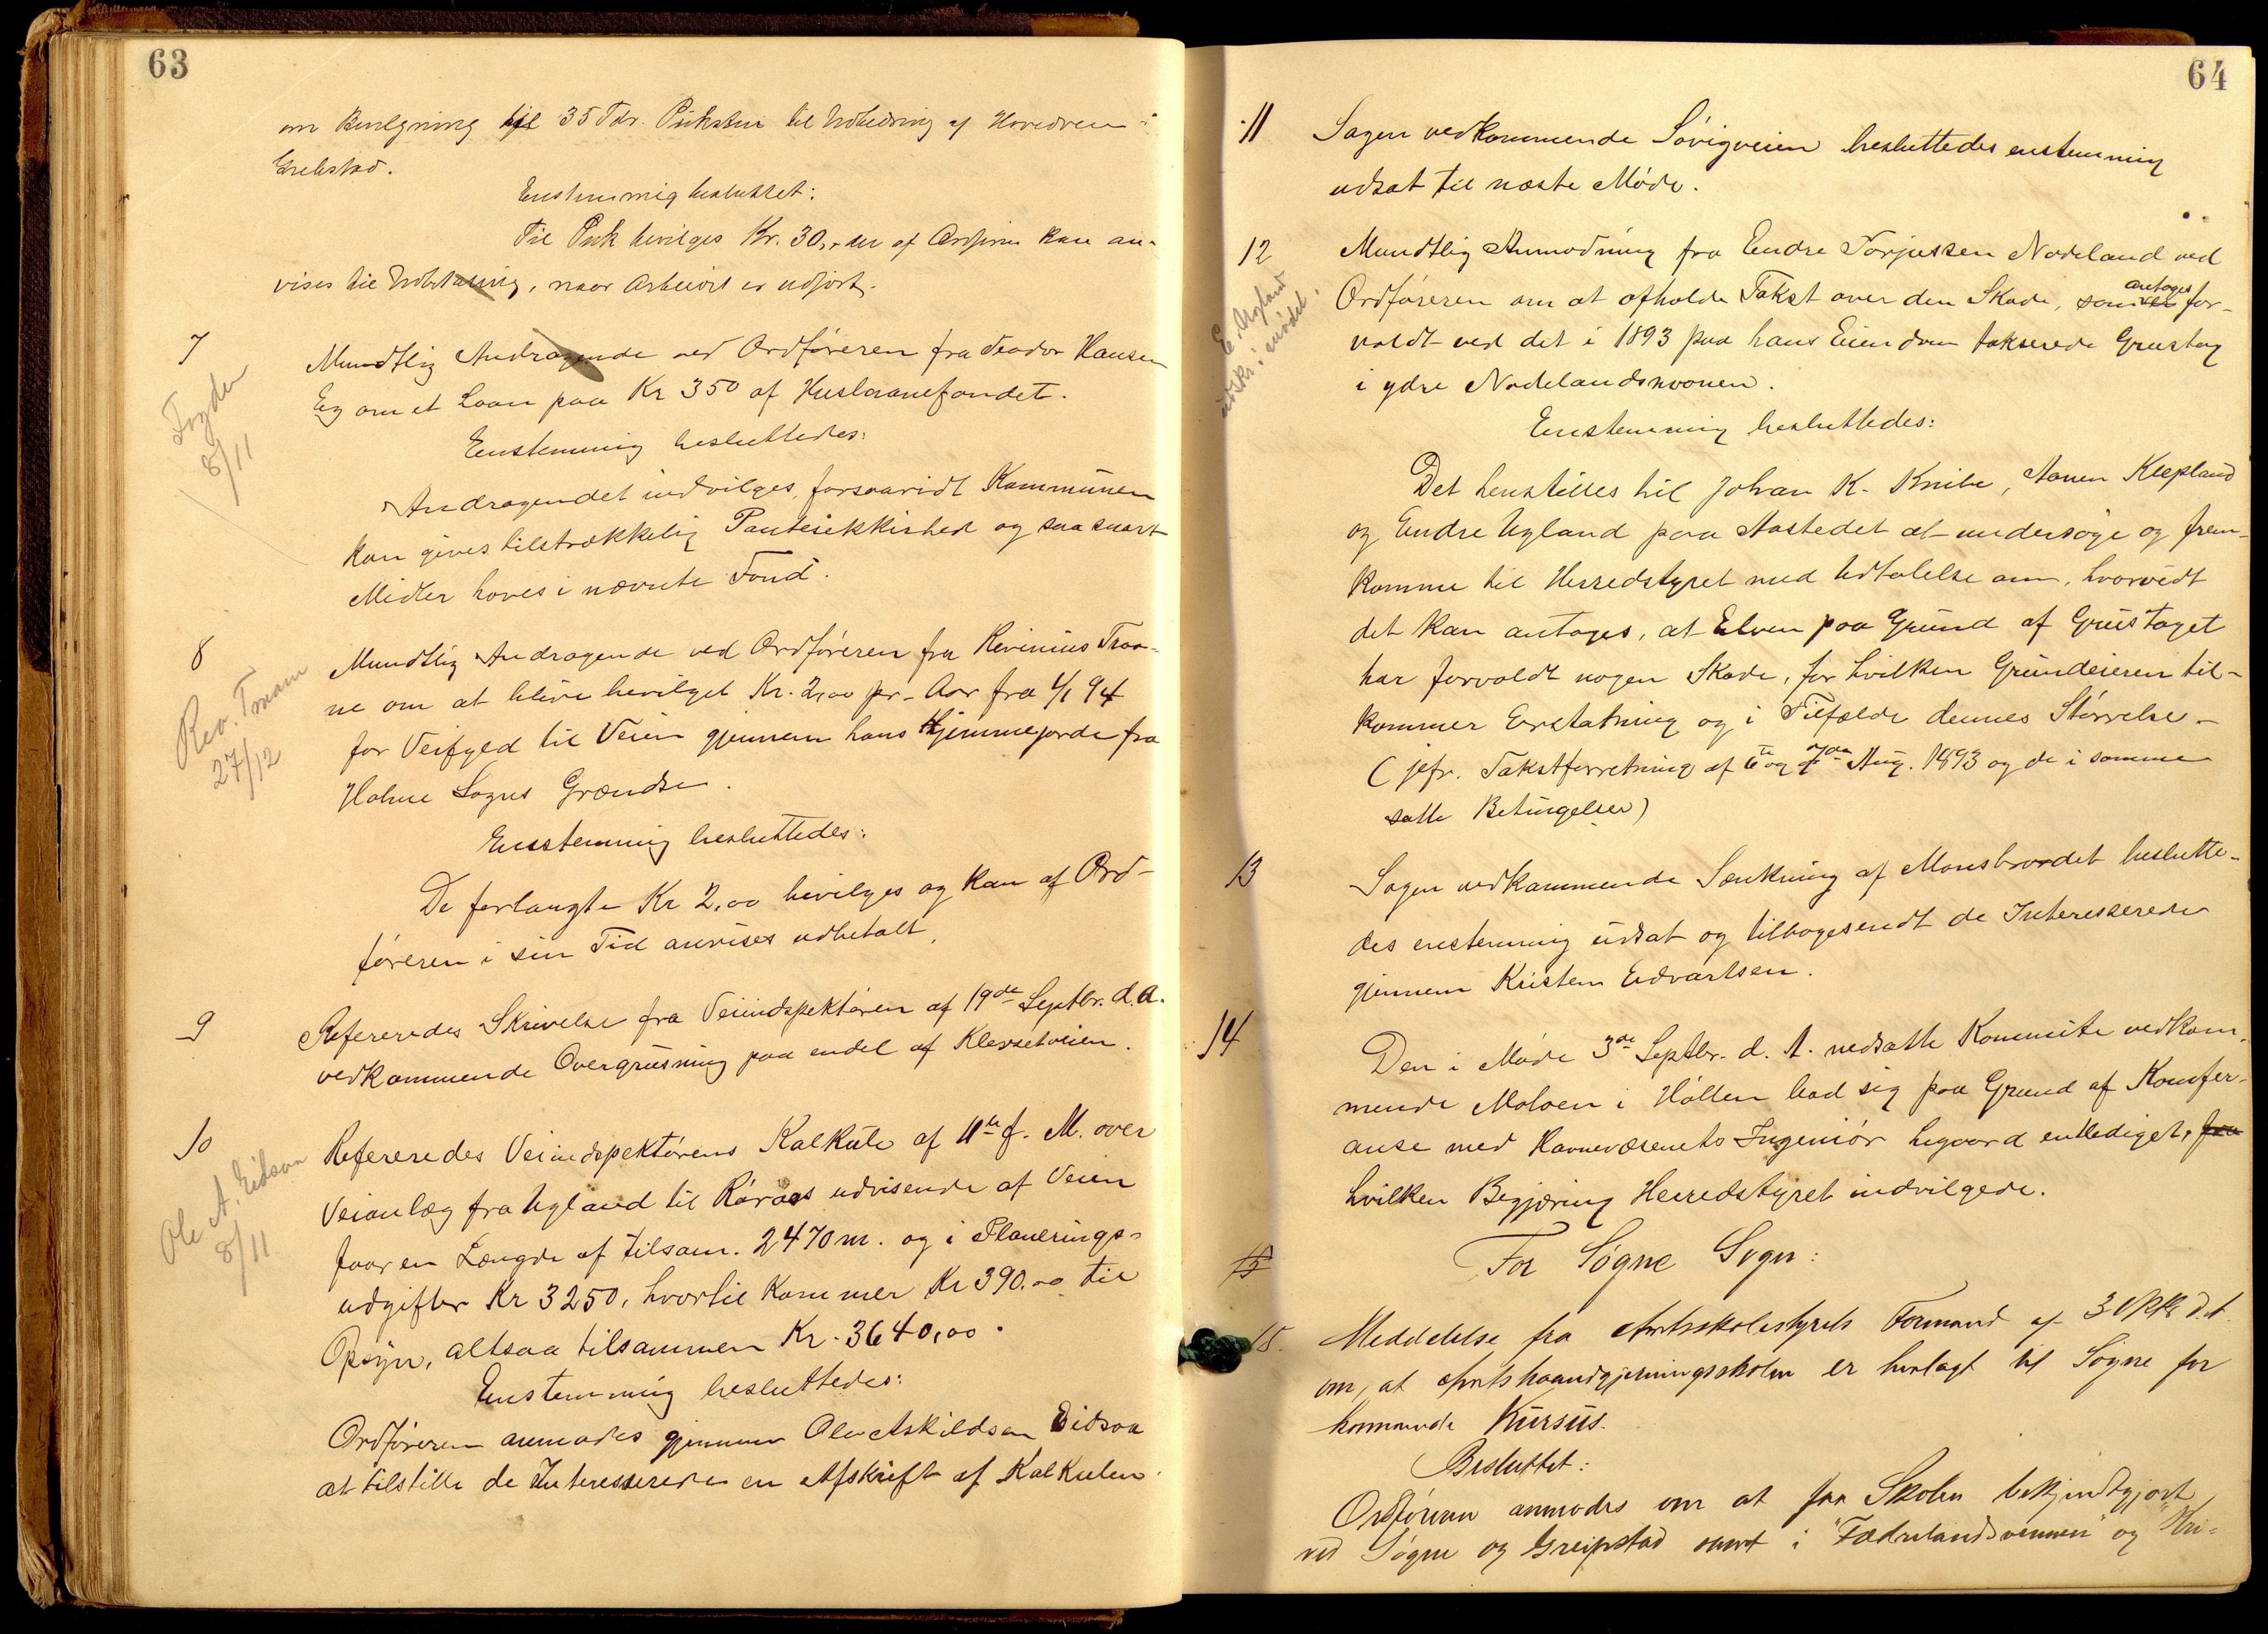 63
om Bevilgning til 35 Tdr. Puksten til Udbedring af Hovedveien i
Greibstad.
Enstemmig besluttet:
Til Puk bevilges Kr. 30,- der af Ordføreren kan an-
vises til Udbetaling, naar Arbeidet er udført.
7
Mundtlig Andragende ved Ordføreren fra Teodor Hansen
Eg om et Laan paa Kr 350 af Huslaanefondet.
8/11
Enstemmig besluttedes:
Andragendet indvilges, forsaavidt Kommunen
kan gives tilstrækkelig Pantesikkerhed og saa snart
Midler haves i nævnte Fond.
8
Mundtlig Andragende ved Ordføreren fra Revinius Traa-
ne om at blive bevilget Kr. 2,00 pr. Aar fra 1/1 94
for Veifyld til Veien gjennem hans Hjemmejorde fra
Holme Sogns Grændse.
27/12
Enstemmig besluttedes:
De forlangte Kr 2,00 bevilges og kan af Ord-
føreren i sin Tid anvises udbetalt.
9
Refereredes Skrivelse fra Veiindspektøren af 19de Septbr. d. A.
vedkommende Overgrusning paa endel af Klevsetveien.
10
Refereredes Veiindspektørens Kalkule af 11te f. M. over
Veianlæg fra Ugland til Røraas udvisende at Veien
faar en Længde af tilsam. 2470 m. og i Planerings-
udgifter Kr 3250, hvortil kommer Kr 390.00 til
Opsyn, altsaa tilsammen Kr. 3640,00.
Ole A. Eidsaa
8/11
Enstemmig besluttedes:
Ordføreren anmodes gjennem Ole Askildsen Eidsaa
at tilstille de Interesserede en Afskrift af Kalkulen.
64
11
Sagen vedkommende Søvigveien besluttedes enstemmig
udsat til næste Møde.
12
Mundtlig Anmodning fra Endre Torjussen Nodeland ved
Ordføreren om at afholde Takst over den Skade, som antages for-
voldt ved det i 1893 paa hans Eiendom takserede Grustag
i ydre Nodelandsmoen.
E. Ugland
i mødet.
Enstemmig besluttedes:
Det henstilles til Johan K. Knibe, Aanen Klepland
og Endre Ugland paa Aastedet at undersøge og frem-
komme til Herredstyret med Udtalelse om, hvorvidt
det kan antages, at Elven paa Grund af Grustaget
har forvoldt nogen Skade, for hvilken Grundeieren til-
kommer Erstatning og i Tilfælde dennes Størrelse -
(jefr. Takstforretning af 6te og 7de Aug. 1893 og de i samme
satte Betingelser)
13
Sagen vedkommende Sænkning af Monsbroodet beslutte-
des enstemmig udsat og tilbagesendt de Interesserede
gjennem Kristen Edvartsen.
14
Den i Møde 3de Septbr. d. A. nedsatte Kommite vedkom-
mende Moloen i Høllen bad sig paa Grund af Konfer-
anse med Havnevæsenets Ingeniør Legaard entlediget,
hvilken Begjæring Herredstyret indvilgede.
15
For Søgne Sogn:
15.
Meddelelse fra Amtsskolestyrets Formand af
om, at Amtshaandgjerningsskolen er henlagt til Søgne for
kommende Kursus.
Besluttet:
Ordføreren anmodes om at faa Skolen bekjendtgjort
ved Søgne og Greipstad samt i "Fædrelandsvennen" og "Kri-